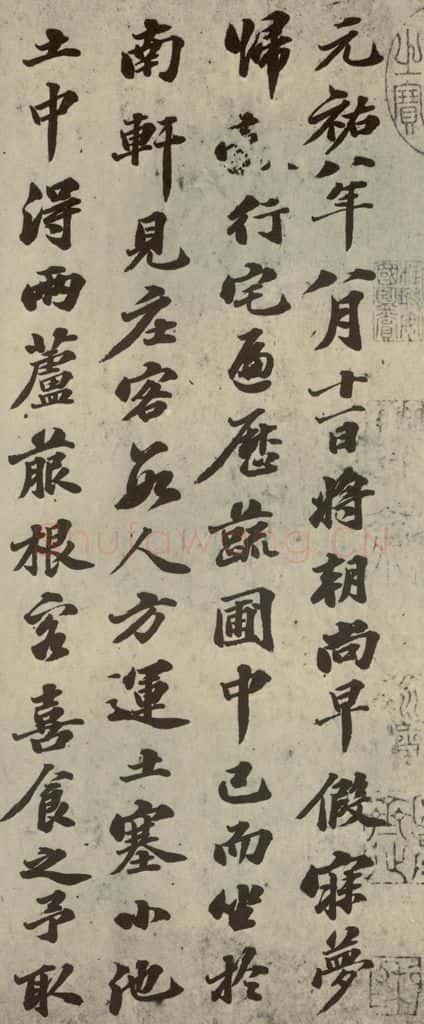 元祐八年八月十一日將朝尚早假寐夢
歸行宅遍歷蔬圃中已而坐於
南軒見庄客數人方運土塞小池
土中得兩蘆菔根客喜食之予取
之寶
shufawang.CN